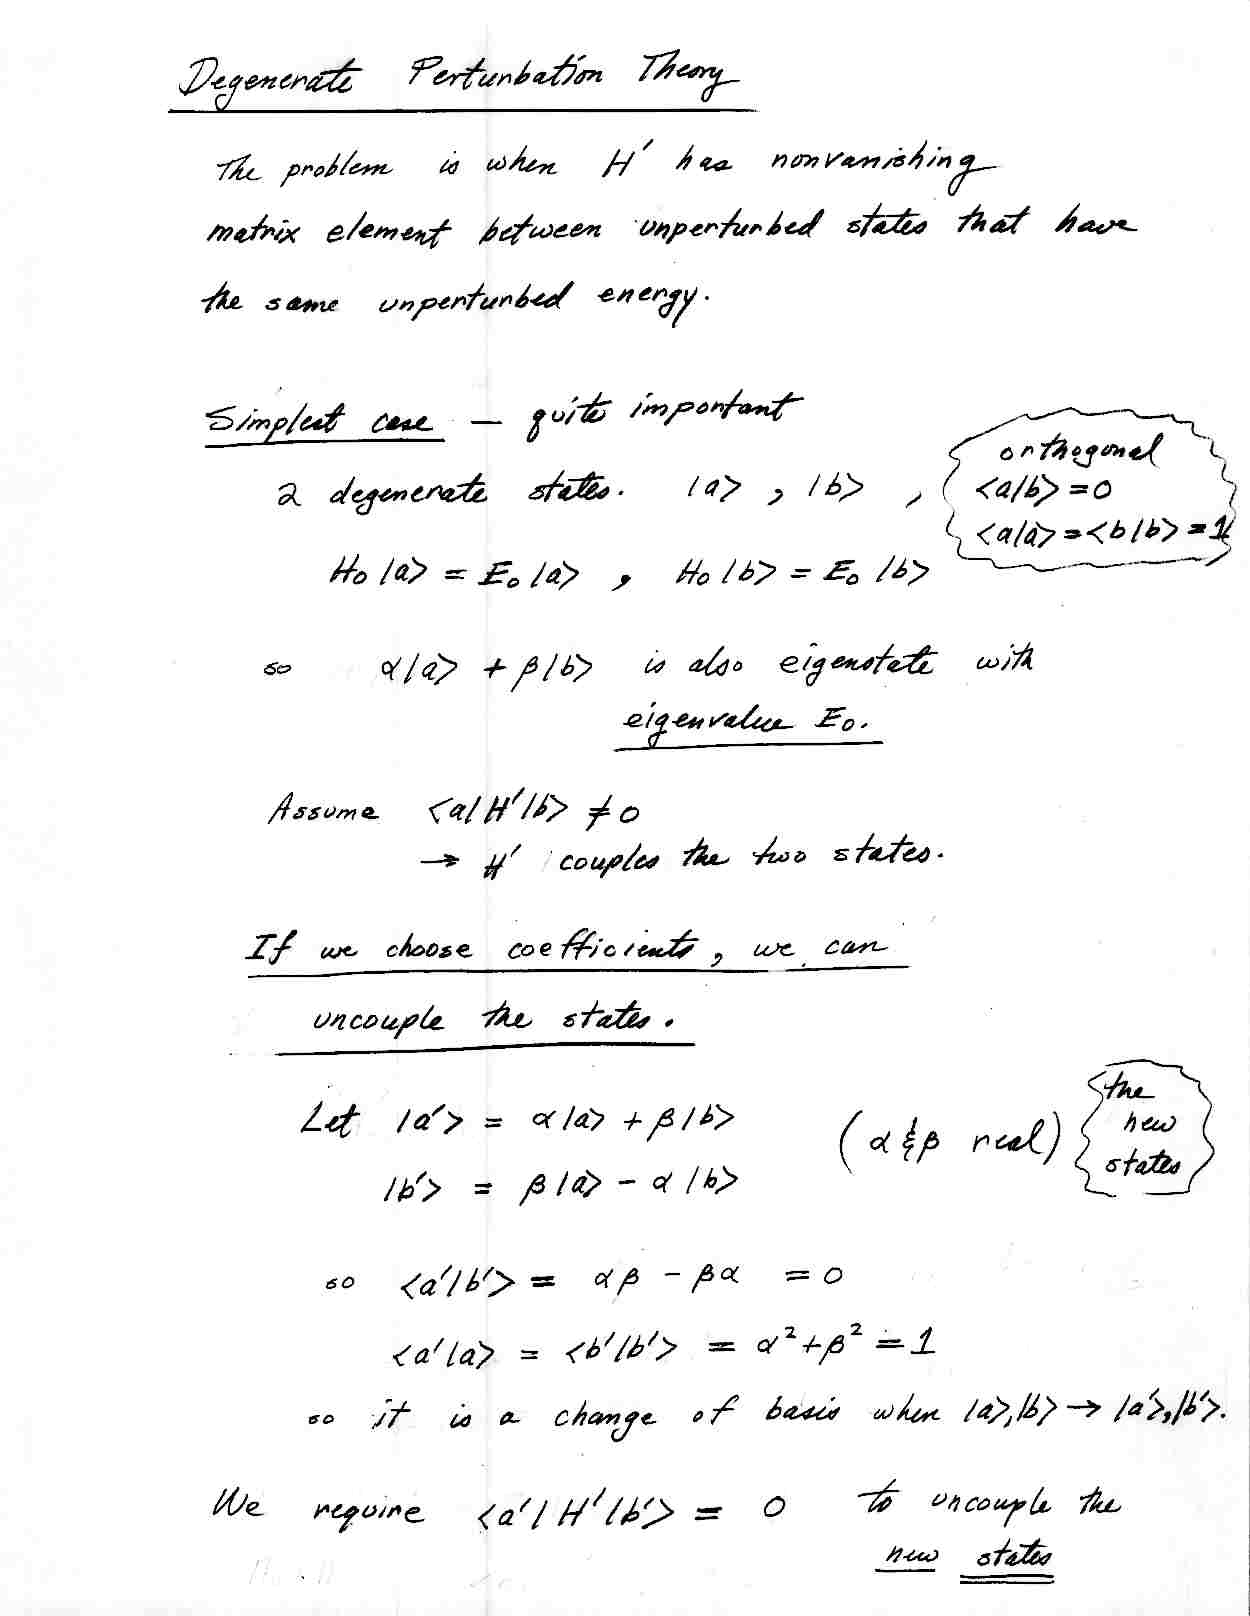 Degenerate Perturbation Theory
The problem is when H′ has nonvanishing
matrix element between unperturbed states that have
the same unperturbed energy.
Simplest case — quite important
2 degenerate states. |a⟩ , |b⟩ ,
orthogonal
⟨a|b⟩ = 0
⟨a|a⟩ = ⟨b|b⟩ = 1
H₀ |a⟩ = E₀ |a⟩ , H₀ |b⟩ = E₀ |b⟩
so α|a⟩ + β|b⟩ is also eigenstate with
eigenvalue E₀.
Assume ⟨a|H′|b⟩ ≠ 0
→ H′ couples the two states.
If we choose coefficients, we can
uncouple the states.
Let |a′⟩ = α|a⟩ + β|b⟩
|b′⟩ = β|a⟩ - α|b⟩
(α & β real)
the
new
states
so ⟨a′|b′⟩ = αβ - βα = 0
⟨a′|a⟩ = ⟨b′|b′⟩ = α² + β² = 1
so it is a change of basis when |a⟩,|b⟩ → |a′⟩,|b′⟩.
We require ⟨a′|H′|b′⟩ = 0 to uncouple the
new states